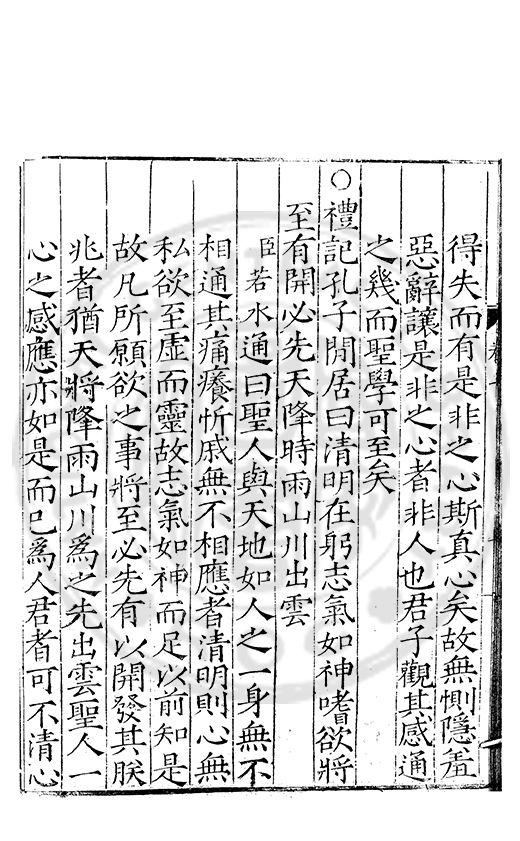 得失而有是非之心斯真心矣故無惻隱羞
惡辭讓是非之心者非人也君子觀其感通
之幾而聖學可至矣
○禮記孔子閒居曰清明在躬志氣如神嗜欲將
至有開必先天降時雨山川出雲
臣若水通曰聖人與天地如人之一身無不
相通其痛癢忻戚無不相應者清明則心無
私欲至虛而靈故志氣如神而足以前知是
故凡所願欲之事將至必先有以開發其朕
兆者猶天將降雨山川爲之先出雲聖人一
心之感應亦如是而已爲人君者可不清心